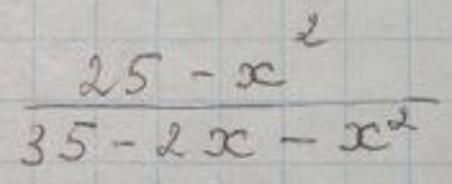 25 - x²
35 - 2x - x²